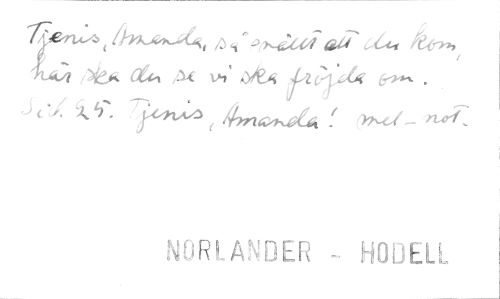 Tjenis, Amanda, så snällt att du kom,
här ska du se vi ska fröjda om.
Sid. 25. Tjenis, Amanda! mel-not.
NORLANDER - HODELL